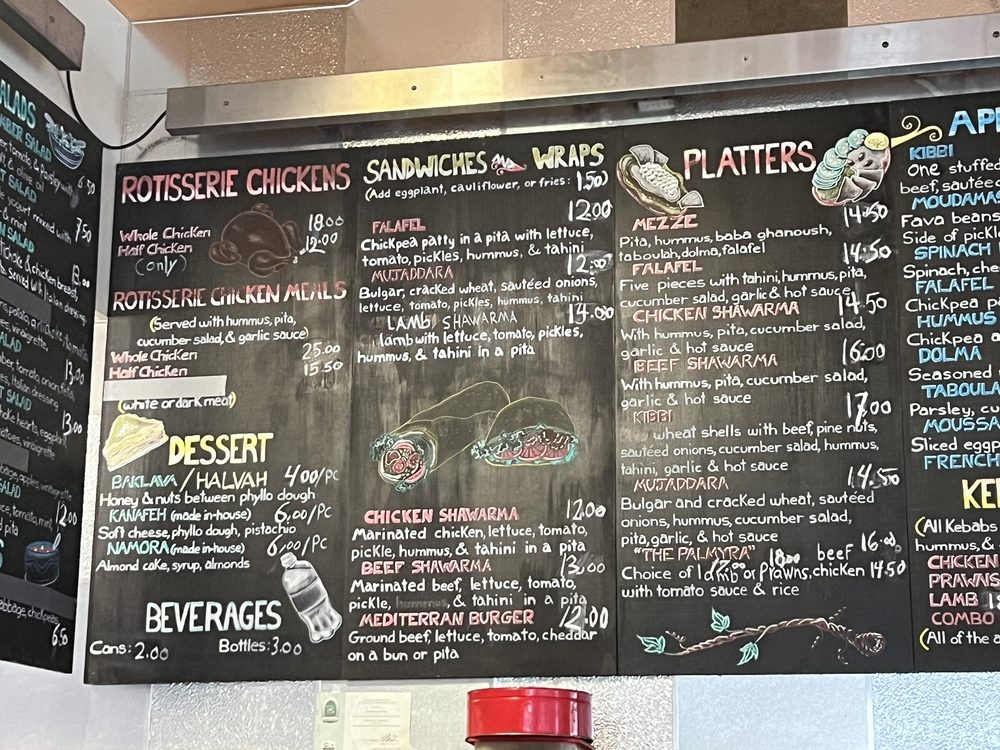 SALADS
SALAD
6.50
7.50
SALAD
13.00
13.00
SALAD
13.00
12.00
6.50
ROTISSERIE CHICKENS
Whole Chicken 18.00
Half Chicken 12.00
(only)
ROTISSERIE CHICKEN MEALS
(Served with hummus, pita,
cucumber salad, & garlic sauce)
Whole Chicken 25.00
Half Chicken 15.50
(white or dark meat)
DESSERT
BAKLAVA / HALVAH 4.00/PC
Honey & nuts between phyllo dough
KANAFEH (made in-house) 6.00/PC
Soft cheese, phyllo dough, pistachio
NAMORA (made in-house) 6.00/PC
Almond cake, syrup, almonds
BEVERAGES
Cans: 2.00 Bottles: 3.00
SANDWICHES WRAPS
(Add eggplant, cauliflower, or fries: 1.50)
FALAFEL 12.00
Chickpea patty in a pita with lettuce,
tomato, pickles, hummus, & tahini
MUJADDARA 12.00
Bulgar, cracked wheat, sautéed onions,
lettuce, tomato, pickles, hummus, tahini
LAMB SHAWARMA 14.00
lamb with lettuce, tomato, pickles,
hummus, & tahini in a pita
CHICKEN SHAWARMA 12.00
Marinated chicken, lettuce, tomato,
pickle, hummus, & tahini in a pita
BEEF SHAWARMA 13.00
Marinated beef, lettuce, tomato,
pickle, hummus, & tahini in a pita
MEDITERRAN BURGER 12.00
Ground beef, lettuce, tomato, cheddar
on a bun or pita
PLATTERS
MEZZE 14.50
Pita, hummus, baba ghanoush,
taboulah, dolma, falafel
FALAFEL 14.50
Five pieces with tahini, hummus, pita,
cucumber salad, garlic & hot sauce
CHICKEN SHAWARMA 14.50
With hummus, pita, cucumber salad,
garlic & hot sauce
BEEF SHAWARMA 16.00
With hummus, pita, cucumber salad,
garlic & hot sauce
KIBBI 17.00
wheat shells with beef, pine nuts,
sautéed onions, cucumber salad, hummus,
tahini, garlic & hot sauce
MUJADDARA 14.50
Bulgar and cracked wheat, sautéed
onions, hummus, cucumber salad,
pita, garlic, & hot sauce
"THE PALMYRA" 18.00 beef 16.00
Choice of lamb or Prawns, chicken 14.50
with tomato sauce & rice
KIBBI
One stuffed
beef, sautéed
MOUDAMAS
Fava beans
Side of pickle
SPINACH
Spinach, che
FALAFEL
Chickpea p
HUMMUS
Chickpea a
DOLMA
Seasoned
TABOULA
Parsley, cu
MOUSSA
Sliced eggp
FRENCH
(All Kebabs
hummus, &
CHICKEN
PRAWNS
LAMB
COMBO
(All of the a